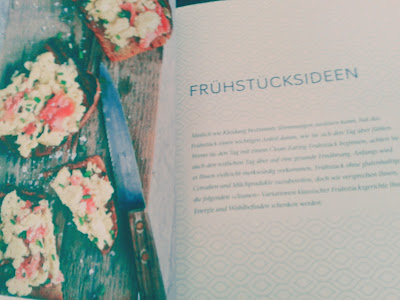 FRÜHSTÜCKSIDEEN
Ähnlich wie Kleidung bestimmte Stimmungen auslösen kann, hat das
Frühstück einen wichtigen Einfluss darauf, wie Sie sich den Tag über fühlen.
Wenn Sie den Tag mit einem Clean-Eating-Frühstück beginnen, achten Sie
auch den restlichen Tag über auf eine gesunde Ernährung. Anfangs wird
es Ihnen vielleicht merkwürdig vorkommen, Frühstück ohne glutenhaltige
Cerealien und Milchprodukte zuzubereiten, doch wir versprechen Ihnen,
die folgenden »cleanen« Variationen klassischer Frühstücksgerichte
Energie und Wohlbefinden schenken werden.